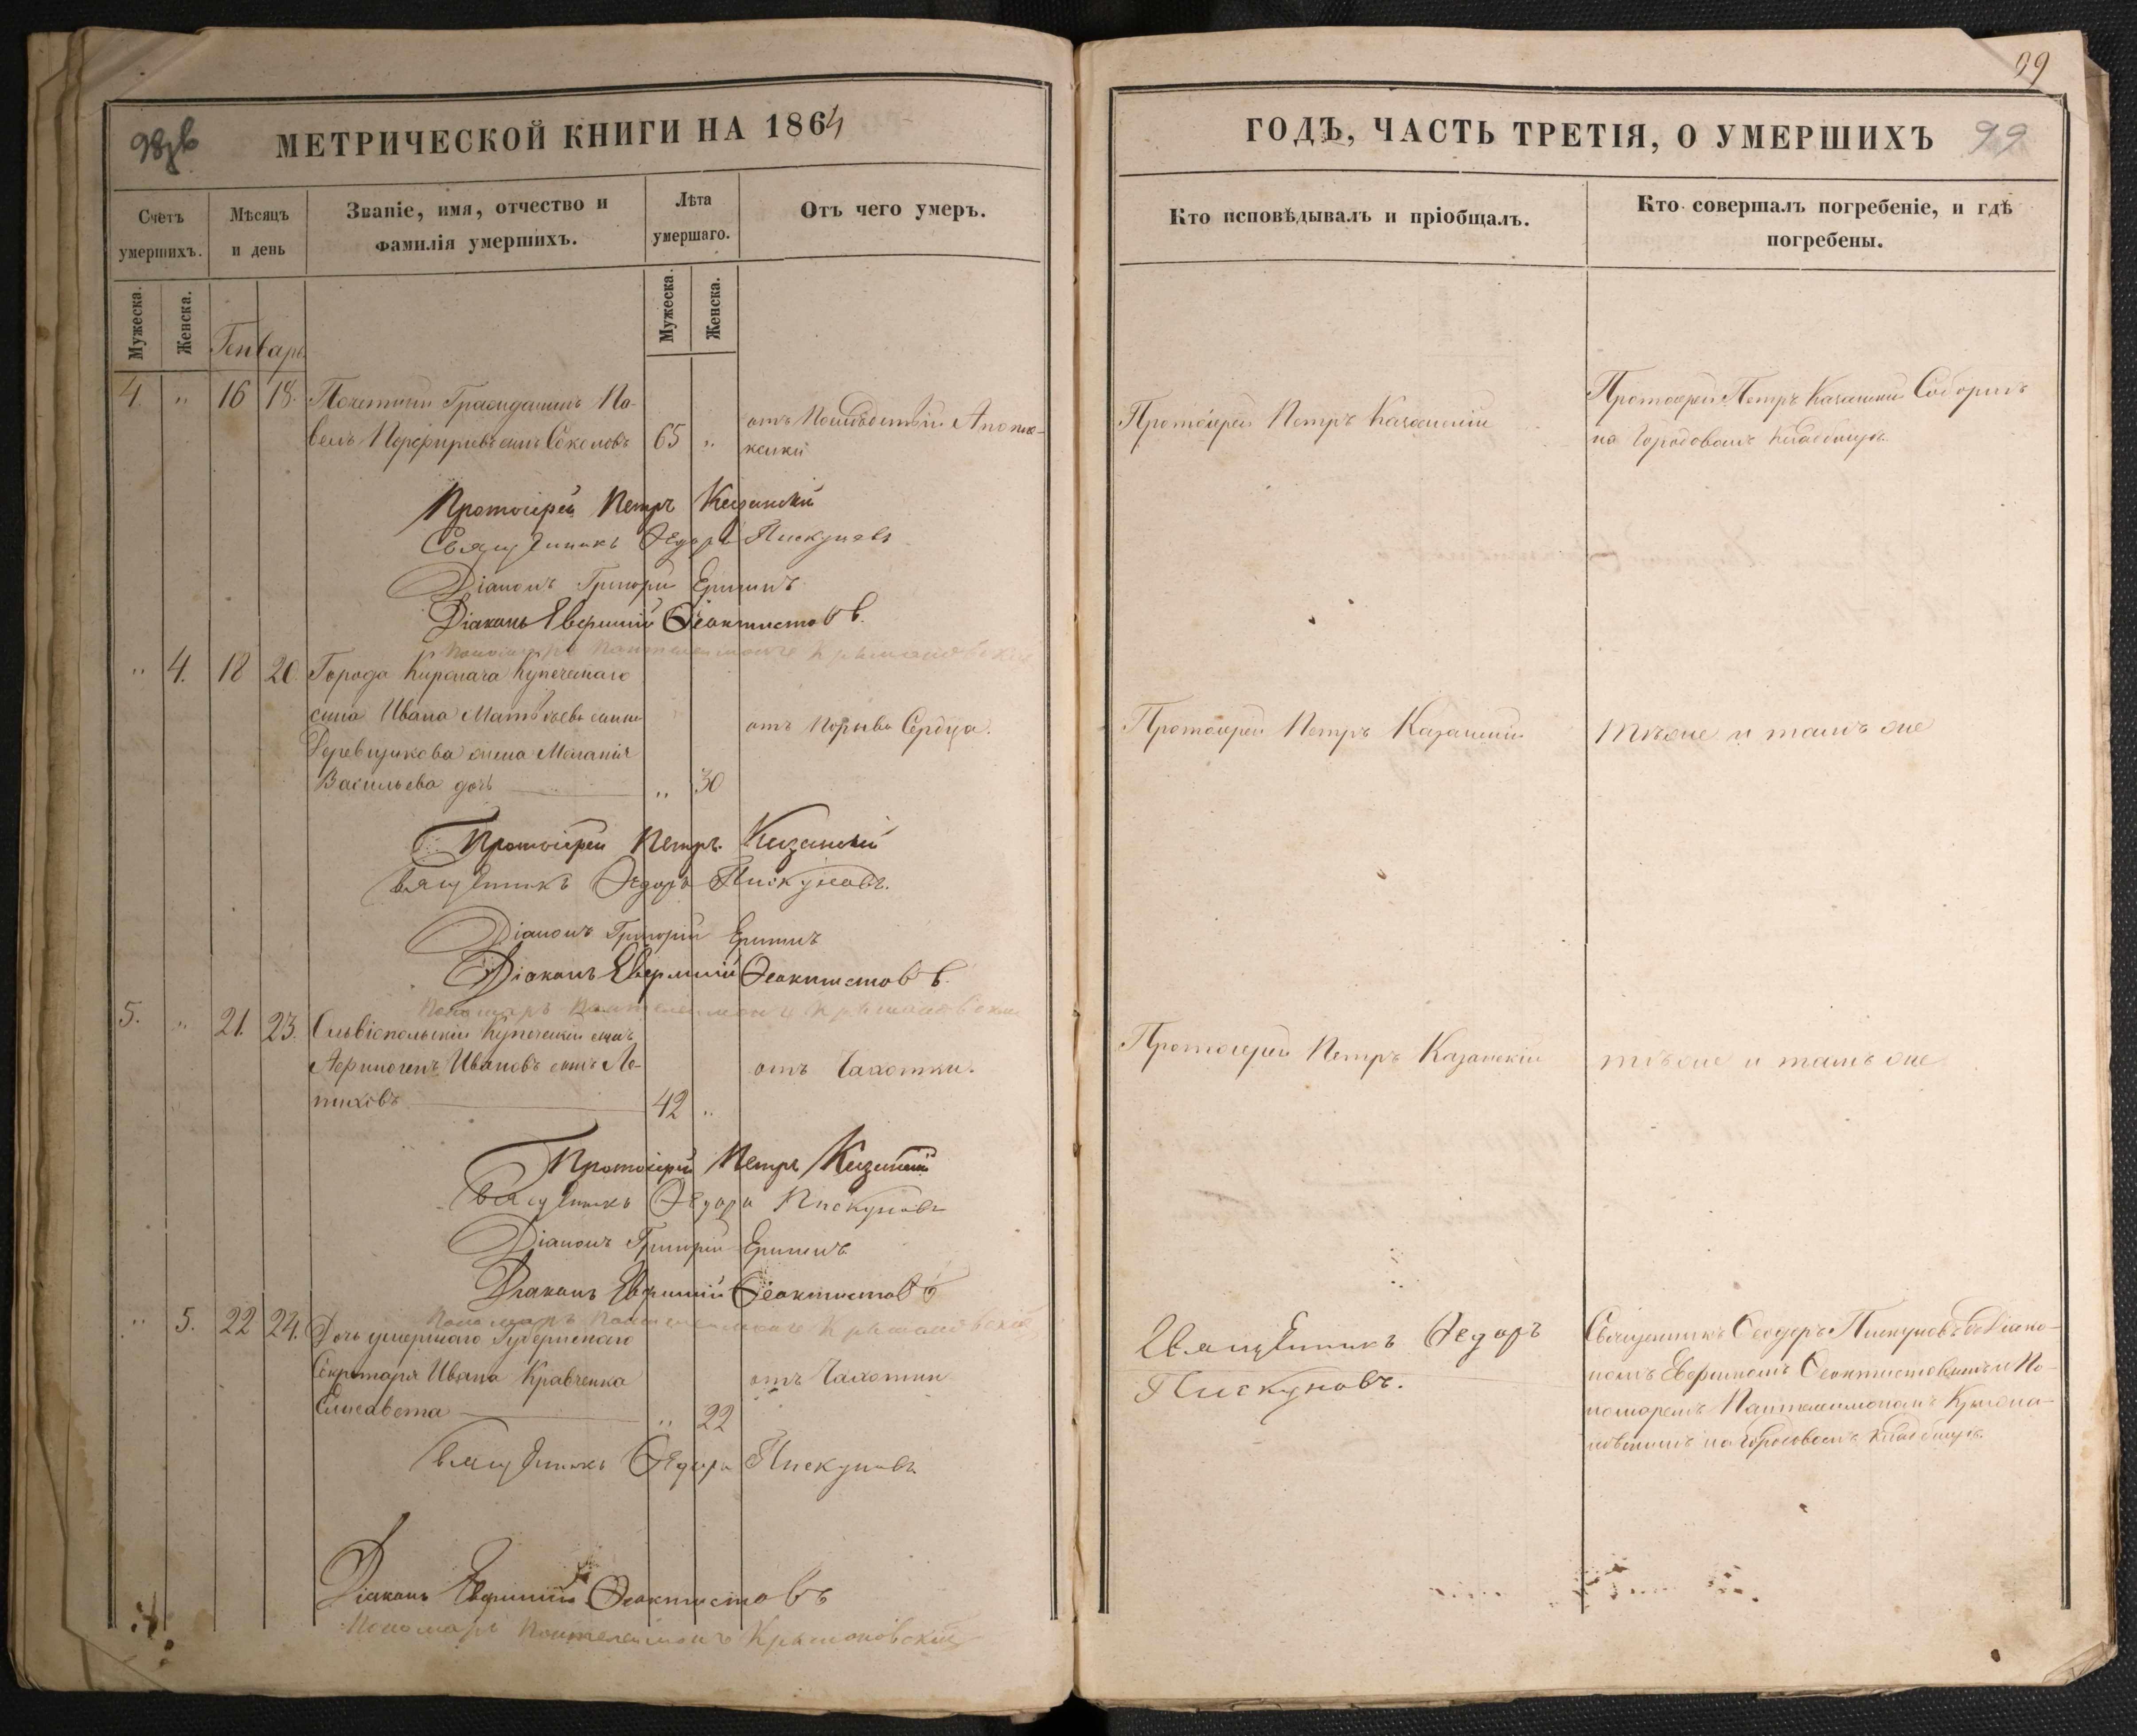 99
98 об
МЕТРИЧЕСКОЙ КНИГИ НА 1864
Счетъ умершихъ.
Мѣсяцъ и день
Званіе, имя, отчество и фамилія умершихъ.
Лѣта умершаго.
Отъ чего умеръ.
Мужеска.
Женска.
Генварь
Мужеска.
Женска.
4. „ 16 18. Почетный Гражданинъ Па-
велъ Перфирьевъ сынъ Соколовъ 65 „
отъ Послѣдствій Апоп-
лексіи
Протоіерей Петръ Казанскій
Священникъ Ѳедоръ Пискуновъ
Діаконъ Григорій Ершинъ
Діаконъ Евфимій Ѳеоктистовъ.
Пономарь Пантелеимонъ Крыжановскій
„ 4. 18 20. Города Киржача Купеческаго
сына Ивана Матвѣева сына
Деревщикова жена Меланія
Васильева дочь „ 30
отъ Порыва Сердца.
Протоіерей Петръ Казанскій
Священникъ Ѳедоръ Пискуновъ.
Діаконъ Григорій Ершинъ
Діаконъ Евфимій Ѳеоктистовъ.
Пономарь Пантелеимонъ Крыжановскій
5. „ 21. 23. Ольвіопольскій Купеческій сынъ
Афиногенъ Ивановъ сынъ Ло-
гиновъ 42 „
отъ Чахотки.
Протоіерей Петръ Казанскій
Священникъ Ѳедоръ Пискуновъ
Діаконъ Григорій Ершинъ
Діаконъ Евфимій Ѳеоктистовъ
Пономарь Пантелеимонъ Крыжановскій
„ 5. 22 24. Дочь умершаго Губернскаго
Секретаря Ивана Кравченка
Елисавета „ 22
отъ Чахотки
Священникъ Ѳедоръ Пискуновъ
Діаконъ Евфимій Ѳеоктистовъ
Пономарь Пантелеимонъ Крыжановскій
ГОДЪ, ЧАСТЬ ТРЕТІЯ, О УМЕРШИХЪ
99
Кто исповѣдывалъ и пріобщалъ.
Кто совершалъ погребеніе, и гдѣ
погребены.
Протоіерей Петръ Казанскій
Протоіерей Петръ Казанскій Соборнѣ
на Городовомъ кладбищѣ.
Протоіерей Петръ Казанскій
тѣже и тамъ же
Протоіерей Петръ Казанскій
тѣже и тамъ же
Священникъ Ѳедоръ
Пискуновъ.
Священникъ Ѳеодоръ Пискуновъ съ Діако-
номъ Евфиміемъ Ѳеоктистовымъ и По-
номаремъ Пантелеимономъ Крыжа-
новскимъ на городовомъ кладбищѣ